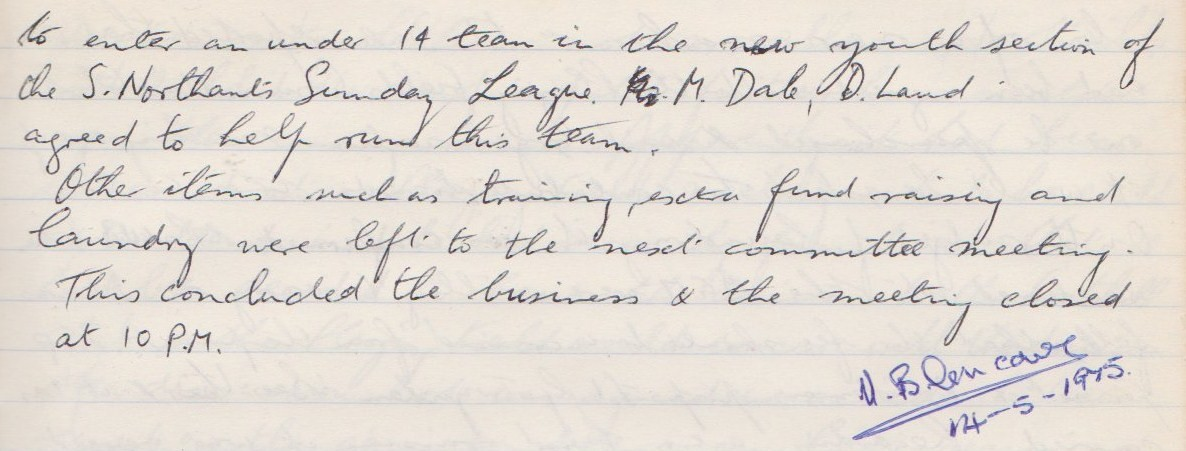 to enter an under 14 team in the new youth section of
the S. Northants Sunday League. M. Dale, D. Laud
agreed to help run this team.
Other items such as training, extra fund raising and
laundry were left to the next committee meeting.
This concluded the business & the meeting closed
at 10 P.M.
N. Blencowe
14-5-1975.